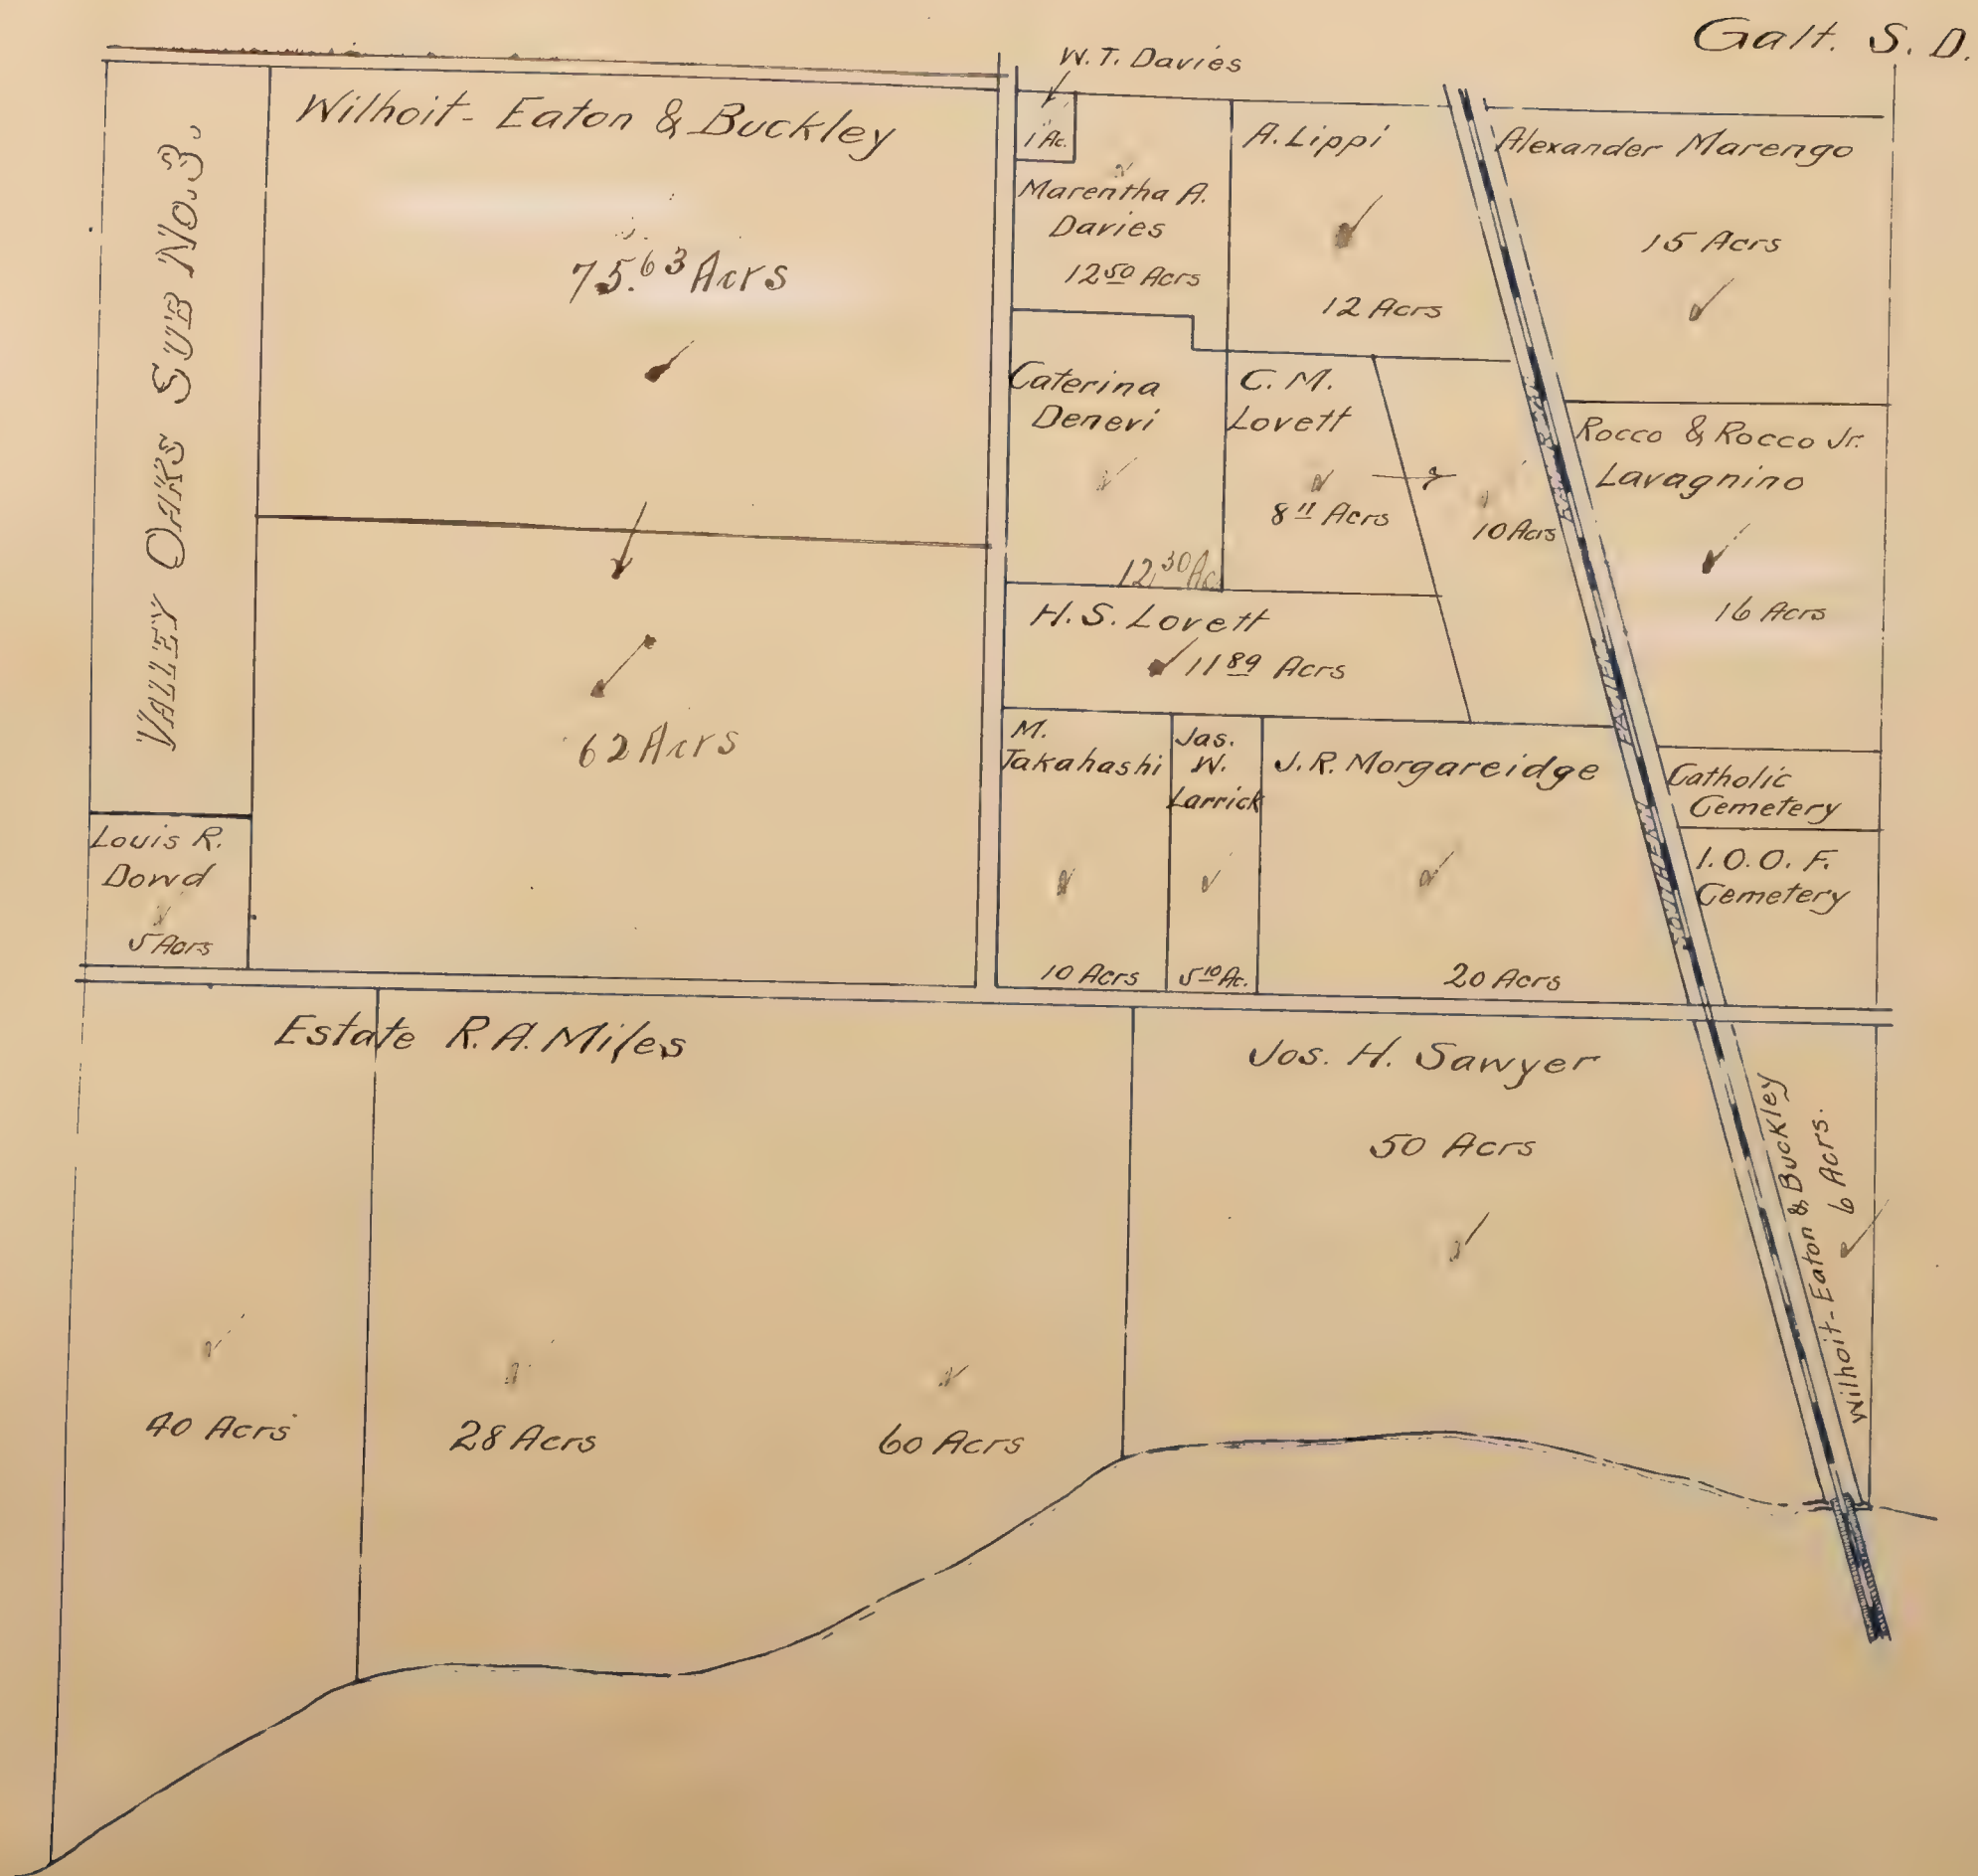 Galt. S. D.
W. T. Davies
1 Ac.
VALLEY OAKS SUB NO. 3.
Wilhoit - Eaton & Buckley
75.63 Acrs
62 Acrs
Louis R.
Dowd
5 Acrs
Marentha A.
Davies
12 50 Acrs
A. Lippi
12 Acrs
Alexander Marengo
15 Acrs
Caterina
Deneri
12.30 Ac.
C. M.
Lovett
8 11 Acrs
10 Acrs
Rocco & Rocco Jr.
Lavagnino
16 Acrs
H. S. Lovett
11 89 Acrs
M.
Takahashi
10 Acrs
Jas.
W.
Larrick
5 10 Ac.
J. R. Morgareidge
20 Acrs
Catholic
Cemetery
I. O. O. F.
Cemetery
Estate R. A. Miles
40 Acrs
28 Acrs
60 Acrs
Jos. H. Sawyer
50 Acrs
Wilhoit - Eaton & Buckley
6 Acrs.